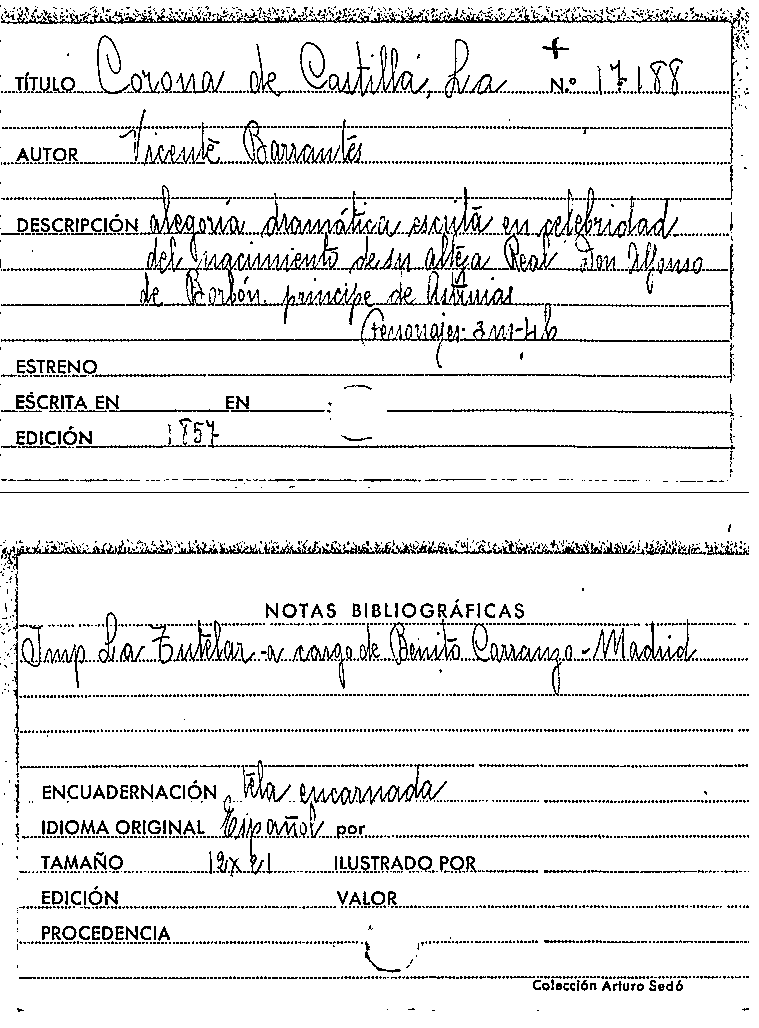 TÍTULO Corona de Castilla, La N.º 17188
AUTOR Vicente Barrantes
DESCRIPCIÓN alegoría dramática escrita en celebridad
del nacimiento de su alteza Real Don Alfonso
de Borbón príncipe de Asturias
Personajes-3m-4h
ESTRENO
ESCRITA EN EN
EDICIÓN 1857
NOTAS BIBLIOGRÁFICAS
Imp La Tutelar-a cargo de Benito Carranza-Madrid
ENCUADERNACIÓN tela encarnada
IDIOMA ORIGINAL Español por
TAMAÑO 12x21 ILUSTRADO POR
EDICIÓN VALOR
PROCEDENCIA
Colección Arturo Sedó